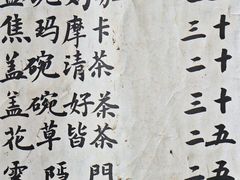 焦玛摩卡 三十
盖碗清茶 二十
盖碗好茶 三十
花草皆茶 二五